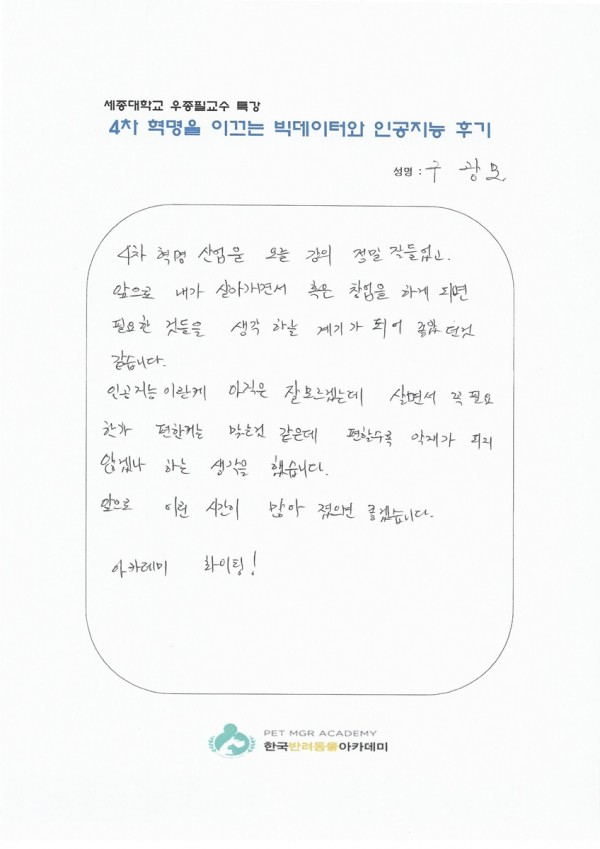 세종대학교 우종필교수 특강
4차 혁명을 이끄는 빅데이터와 인공지능 후기
성명 : 구 광모
4차 혁명 산업을 오늘 강의 정말 잘들었고.
앞으로 내가 살아가면서 혹은 창업을 하게 되면
필요한 것들을 생각 하는 계기가 되어 좋았던것
같습니다.
인공지능이란게 아직은 잘모르겠는데 살면서 꼭 필요
한가 편한거는 맞는것 같은데 편할수록 악재가 되지
않겠나 하는 생각을 했습니다.
앞으로 이런 시간이 많아 졌으면 좋겠습니다.
아카데미 화이팅!
PET MGR ACADEMY
한국반려동물아카데미